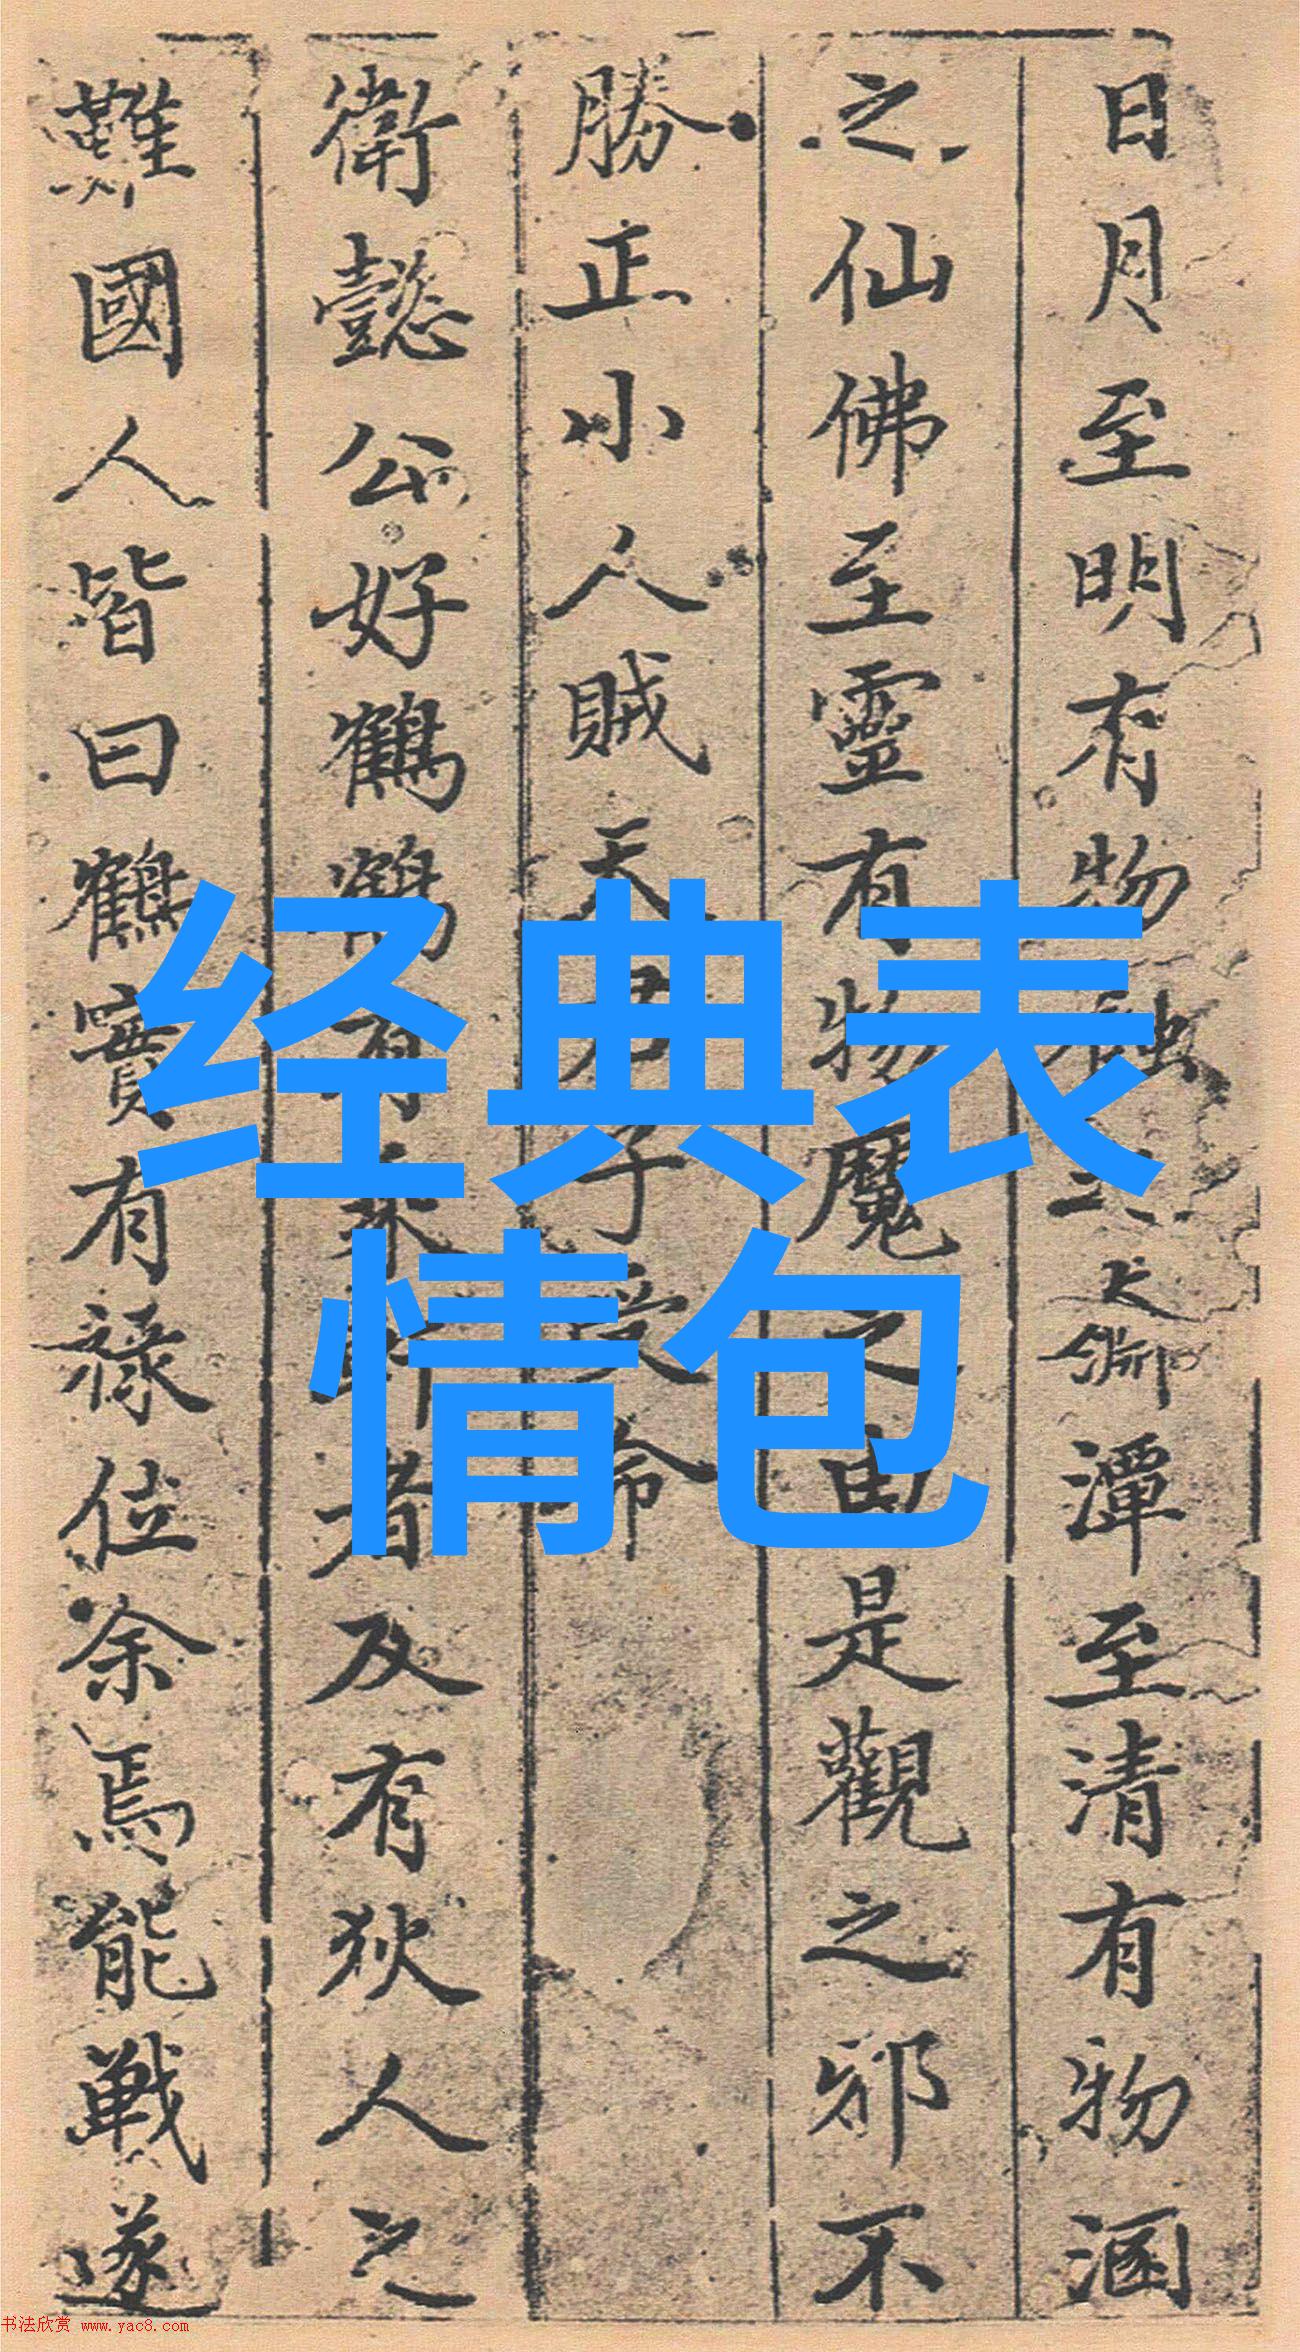 日月至明有物蝕之天淵潭至清有物涵
之仙佛至靈有物魔之由是觀之邪不
勝正小人賊天君子受命
衛懿公好鶴鶴有乘軒者及有狄人之
難國人皆曰鶴實有祿位余焉能戰遂
经典表
情包
书法欣赏 www.yac8.com